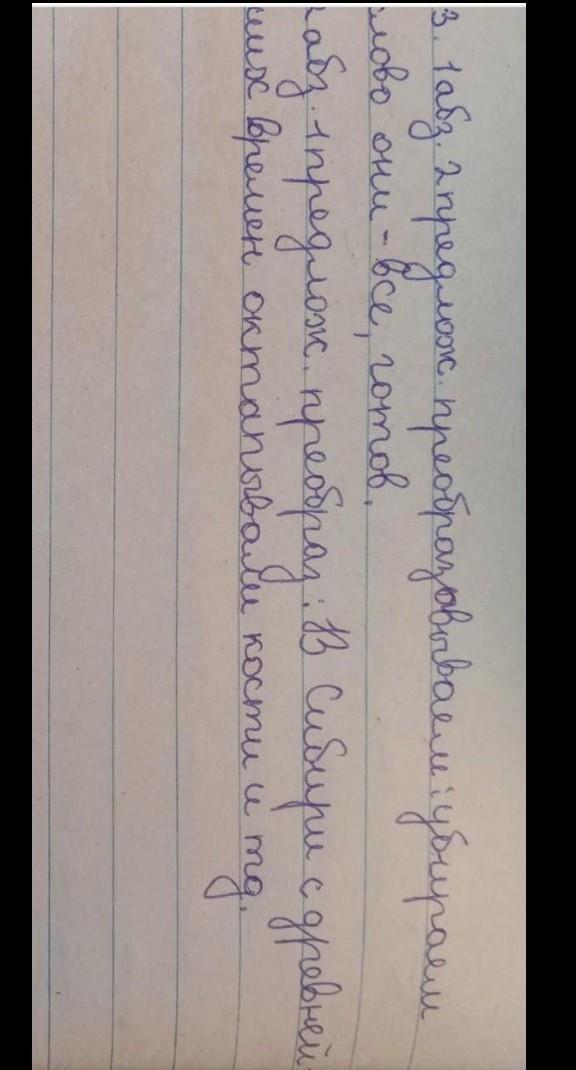 3. 1 абз. 2 предлож. преобразовываем: убираем
слово они - все, готов.
абз. 1 предлож. преобраз.: В Сибири с древней-
ших времен октапывали кости и тд.